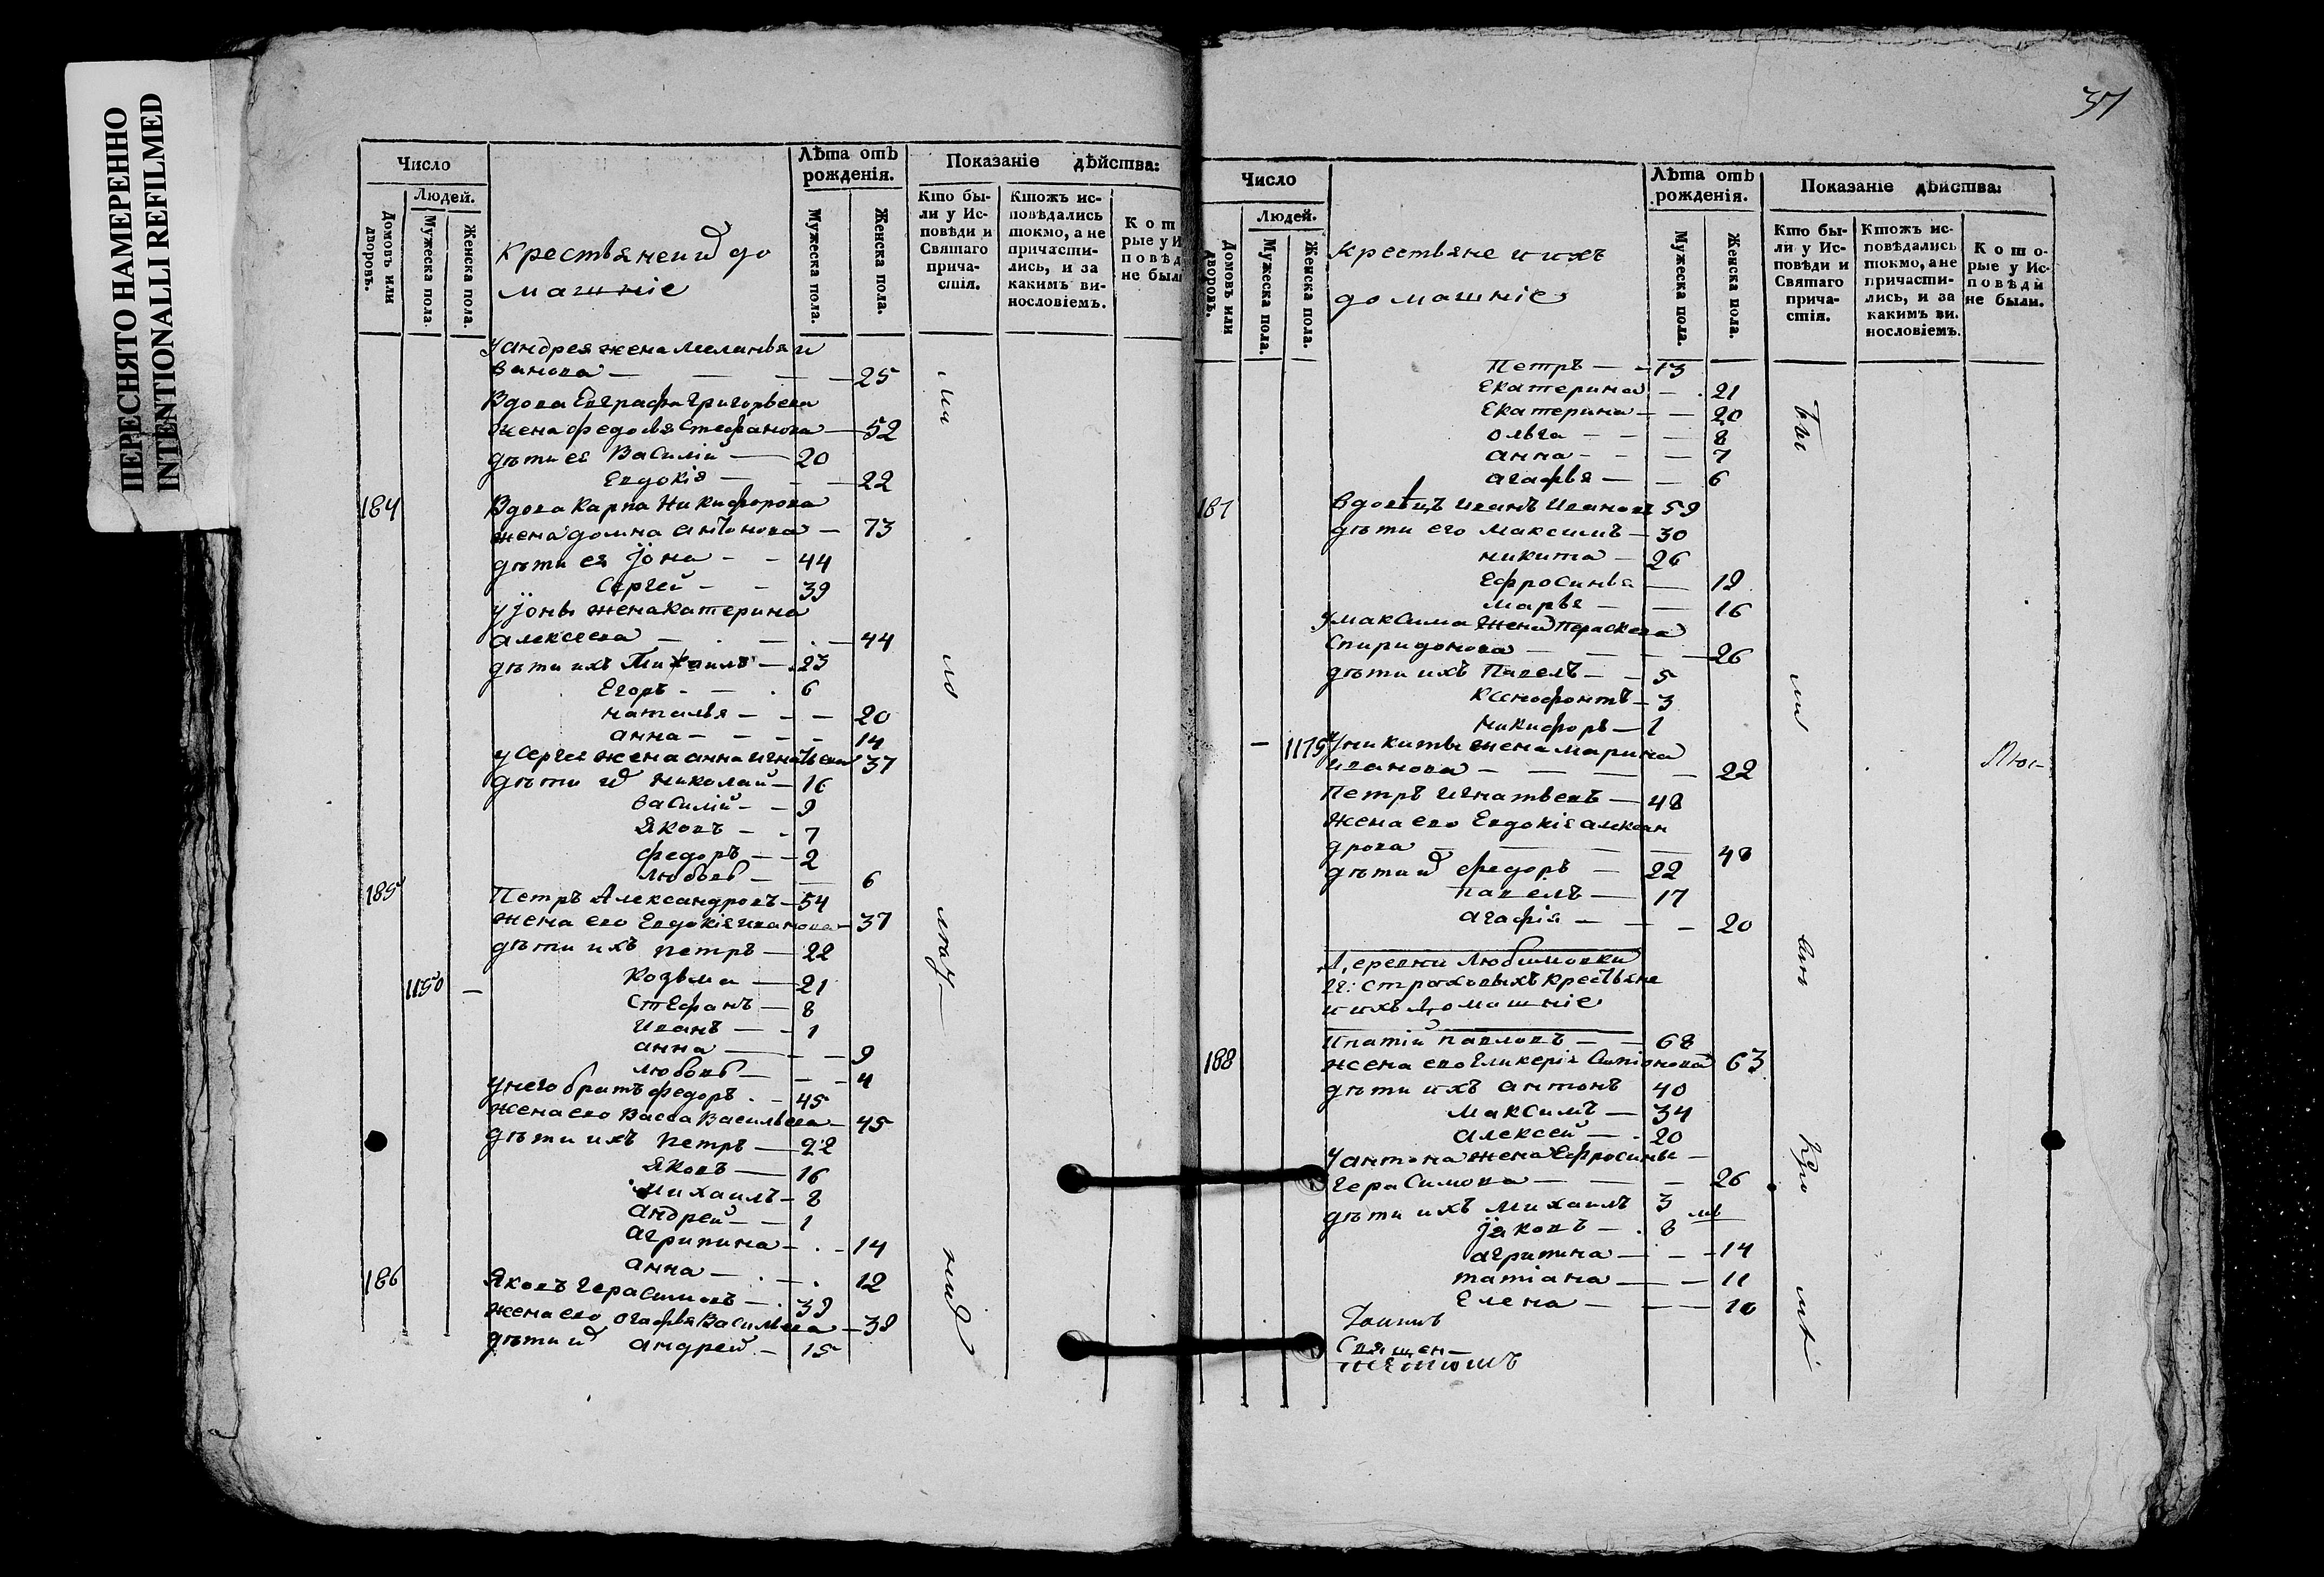 ПЕРЕСНЯТО НАМЕРЕННО
INTENTIONALLI REFILMED
Число
Людей.
Домовъ или дворовъ.
Мужеска пола.
Женска пола.
крестьяне и до
машніе
Лѣта отъ рожденія.
Мужеска пола.
Женска пола.
Показаніе дѣйства:
Кто бы-
ли у Ис-
повѣди и
Святаго
прича-
стія.
Ктожъ ис-
повѣдались
токмо, а не
причасти-
лись, и за
какимъ ви-
нословіемъ.
Кот
рые у И
повѣд
не был
у андрея жена Меланья и
ванова — 25
Вдова Евграфа Григорьева
жена федосья Стефанова — 52
дѣти ея Василій — 20
Евдокія — 22
184 Вдова Карпа Никифорова
жена домна антонова — 73
дѣти ея Іона — 44
Сергей — 39
у Іоны жена катерина
алексеева — 44
дѣти ихъ Михаилъ — 23
Егоръ — 6
наталья — 20
анна — 14
у Сергея жена анна игнатьева 37
дѣти николай — 16
василій — 9
Яковъ — 7
федоръ — 2
любовь — 6
185 Петръ Александровъ — 54
жена его Евдокія иванова — 37
дѣти ихъ петръ — 22
1150 — Козьма — 21
Стефанъ — 8
Иванъ — 1
анна — 9
любовь — 4
у него братъ федоръ — 45
жена его Васса Васильева — 45
дѣти ихъ петръ — 22
Яковъ — 16
михаилъ — 8
андрей — 1
агрипина — 14
анна — 12
186 Яковъ герасимовъ — 39
жена его агафья Васильева — 39
дѣти андрей — 15
37
Число
Людей.
Домовъ или дворовъ.
Мужеска пола.
Женска пола.
крестьяне и ихъ
домашніе
Лѣта отъ рожденія.
Мужеска пола.
Женска пола.
Показаніе дѣйства:
Кто бы-
ли у Ис-
повѣди и
Святаго
прича-
стія.
Ктожъ ис-
повѣдались
токмо, а не
причасти-
лись, и за
какимъ ви-
нословіемъ.
Кото-
рые у Ис-
повѣди
не были.
Петръ — 13
Екатерина — 21
Екатерина — 20
ольга — 8
анна — 7
агафья — 6
187 вдовецъ иванъ Ивановъ 59
дѣти его максимъ — 30
никита — 26
Ефросинья — 19
марья — 16
у максима жена параскева
Спиридонова — 26
дѣти ихъ Павелъ — 5
Ксенофонтъ — 3
никифоръ — 1
— 1175 у никиты жена марина
иванова — 22
Петръ игнатьевъ — 48
жена его Евдокія алексан
дрова — 48
дѣти федоръ — 22
павелъ — 17
агафія — 20
Деревни Любимовки
Гг: Строховыхъ крестьяне
и ихъ Домашніе
ипатій павловъ — 68
188 жена его гликерія 63
дѣти ихъ антонъ 40
максимъ — 34
алексей — 20
у антона жена Ефросинья —
герасимова — 26
дѣти ихъ михаилъ 3
Іаковъ — 8
агрипина — 14
татіана — 11
Елена — 10
Священ—